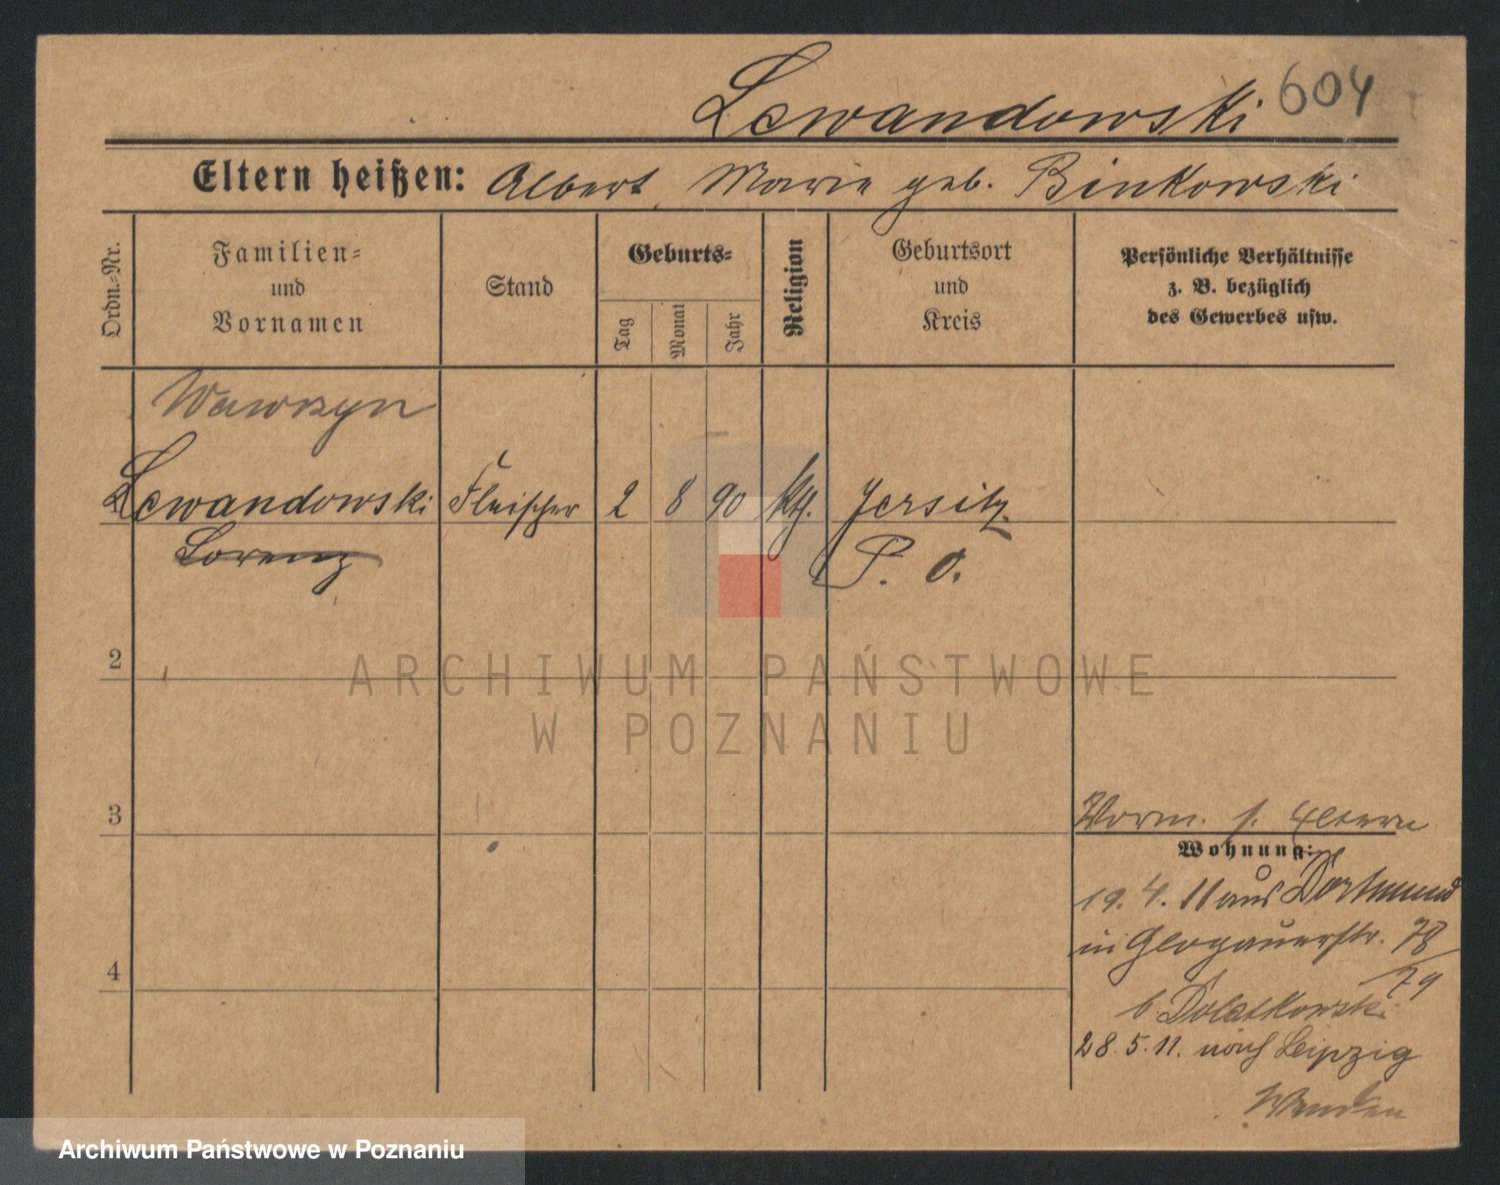 Lewandowski 604
Eltern heißen: Albert, Marie geb. Binkowski
Ordn.-Nr.
Familien-
und
Vornamen
Stand
Geburts-
Tag
Monat
Jahr
Religion
Geburtsort
und
Kreis
Persönliche Verhältnisse
z. B. bezüglich
des Gewerbes usw.
Wawrzyn
Lewandowski Fleischer 2 8 90 kth. Jersitz
Lorenz P. O.
2
ARCHIWUM PAŃSTWOWE
W POZNANIU
3
Vorm. s. Eltern
Wohnung:
19. 4. 11 aus Dortmund
in Glogauerstr. 78
79
4
b. Dolatkowski
28. 5. 11. nach Leipzig
Archiwum Państwowe w Poznaniu